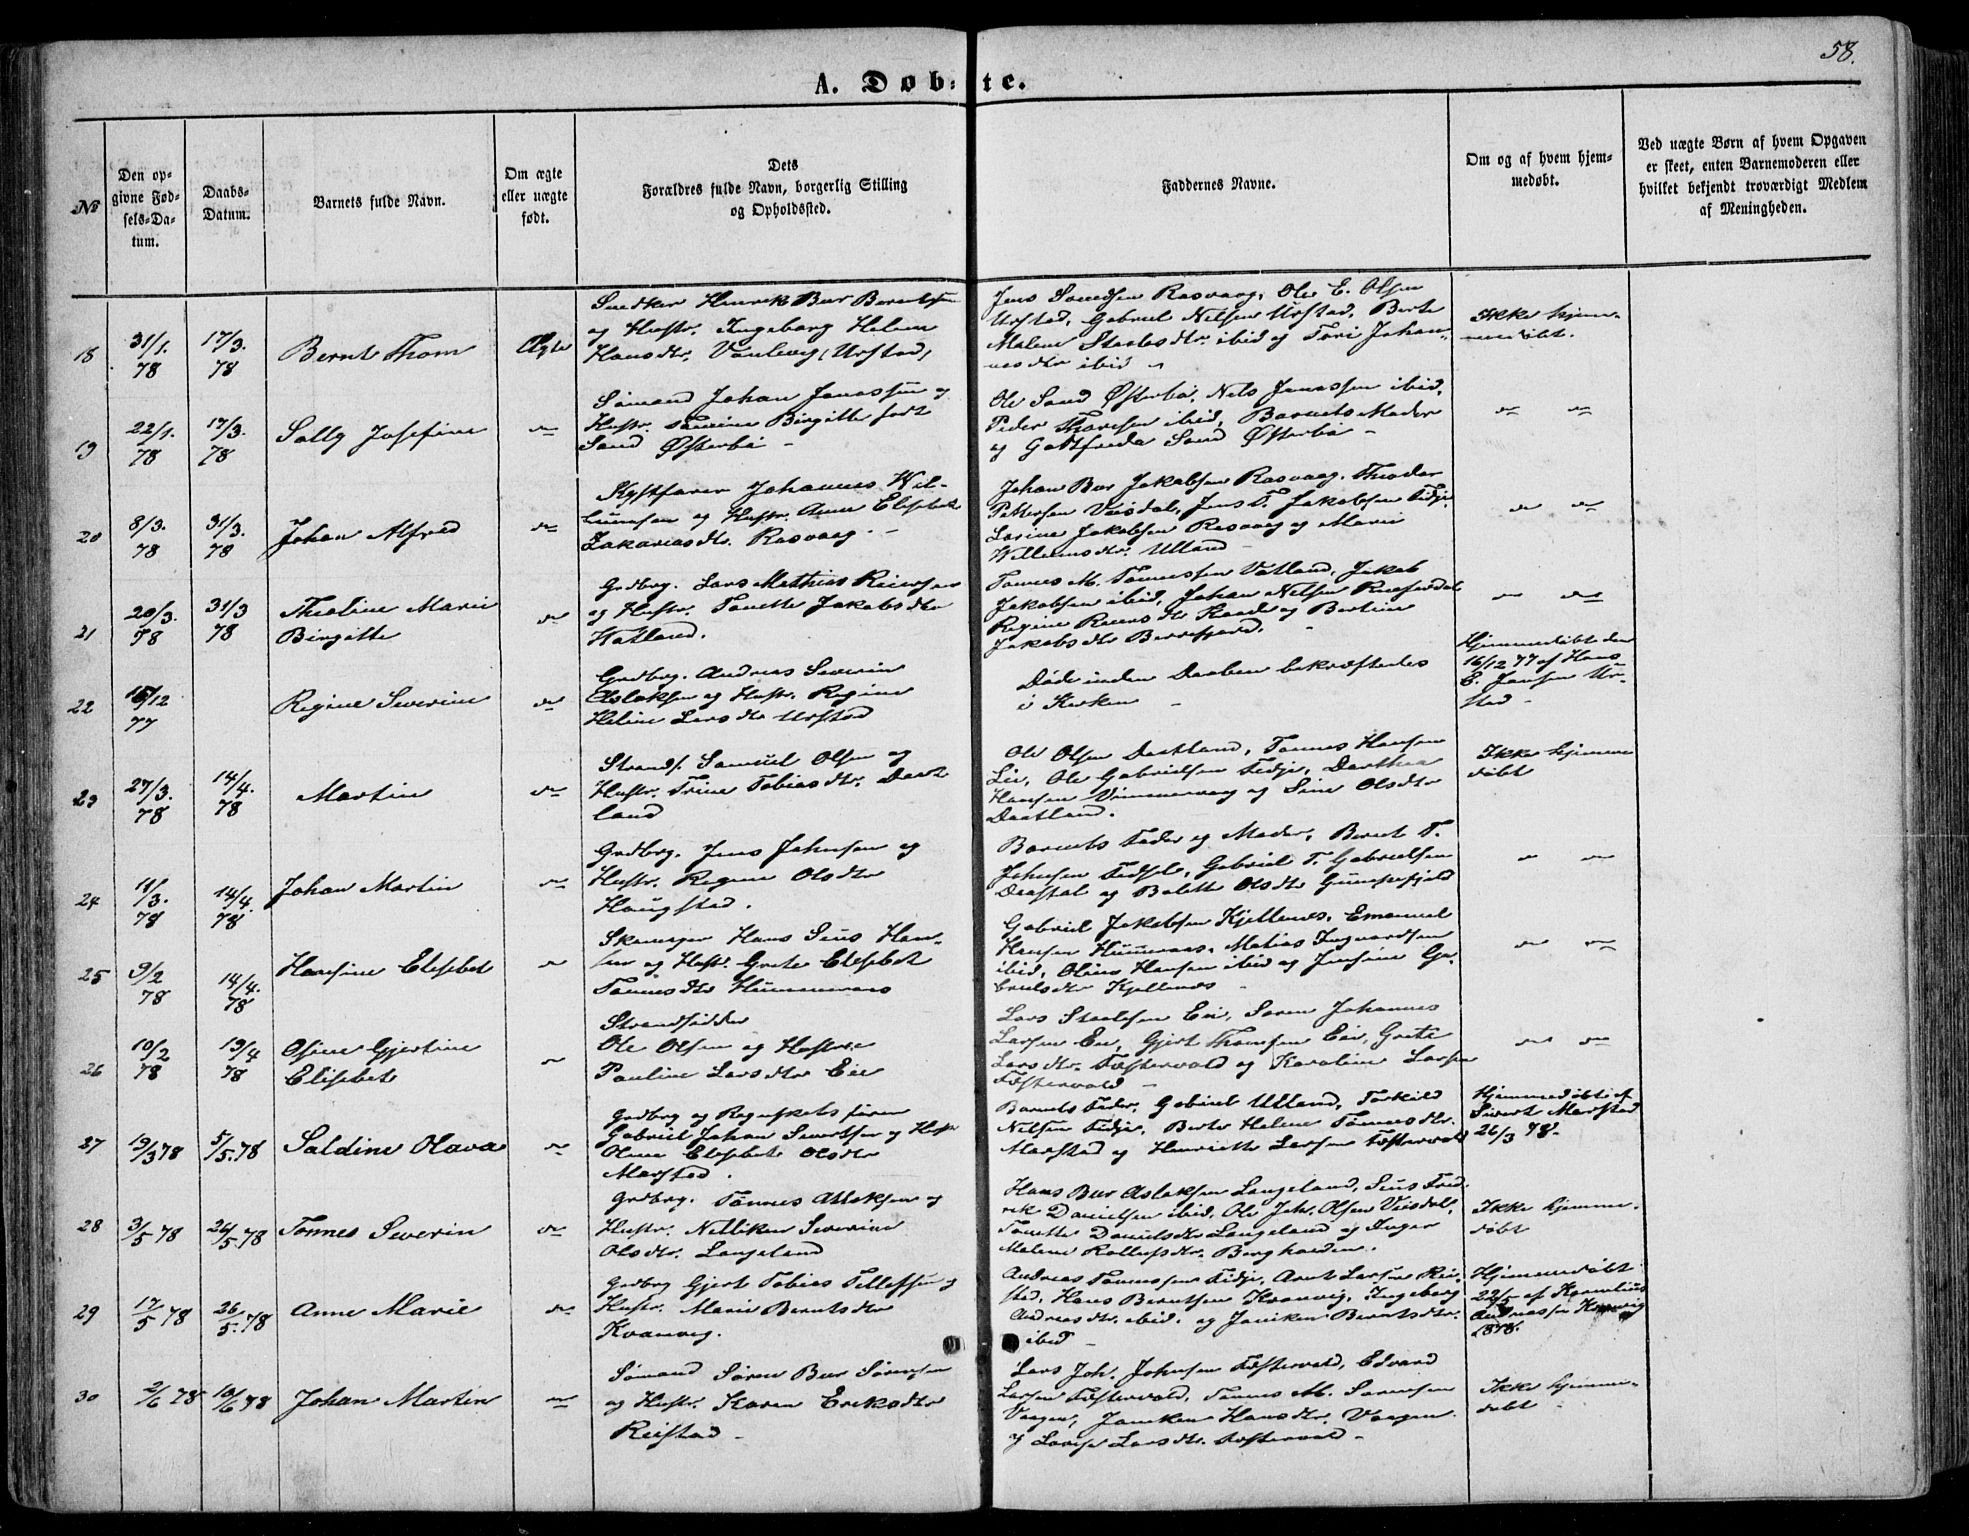 58.
A. Døbte.
№
Den opgivne Fødsels-Datum.
Daabs-Datum.
Barnets fulde Navn.
Om ægte eller uægte født.
Dets Forældres fulde Navn, borgerlig Stilling og Opholdssted.
Faddernes Navne.
Om og af hvem hjemmedøbt.
Ved uægte Børn af hvem Opgaven er skeet, enten Barnemoderen eller hvilket bekjendt troværdigt Medlem af Meningheden.
18
31/1. 78
17/3. 78
Bernt Thom
Ægte
Snedker Henrik Bur Berentsen
og Hustr. Ingeborg Helene
Hansdtr. (Urstad)
Jens Rasvaag, Ole E. Olsen
Urstad, Gabriel Nilsen Urstad, Berte
Malene ibid og Tori Johan-
nesdtr ibid
Ikke hjem-
medøbt.
19
22/1. 78
17/3. 78
Sally Josefine
do
Sømand Johan Jonassen og
Hustr. Birgitte født
Sand Østerbø
Ole Sand Østerbø, Nels Jonassen ibid,
Peder ibid, Barnets Moder
og Gotfreda Sand Østerbø
do do
20
8/3. 78
31/3. 78
Johan Alfred
do
Kystfarer Johannes Wil-
lumsen og Hustr. Anne Elisbet
Zakariasdtr. Rasvaag
Johan Bur Jakobsen Rasvaag, Theodor
Pettersen Veisdal, Jens T. Jakobsen Fidje,
Lorine Jakobsen Rasvaag og Marie
Willumsdtr. Ulland
do do
21
20/3. 78
31/3 78
Tholine Marie
Birgitte
do
Grdbrg. Lars Mathias Reiersen
og Hustr. Tonette Jakobsdtr
Hatland.
Tønnes M. Tønnessen Vatland, Jakob
Jakobsen ibid, Johan Nilsen
Regine Reiersdtr og Bertine
Jakobsdtr Berrefjord.
do do
22
15/12 77
Regine Severine
do
Grdbrg. Andreas Severin
Aslaksen og Hustr. Regine
Heline Larsdtr Urstad
Døde inden Daaben bekræftedes
i Kirken
Hjemmedøbt den
16/12 77 af Hans
E. Jansen Ur-
stad
23
27/3. 78
14/4. 78
Martin
do
Strands. Samuel Olsen og
Hustr. Trine Tobiasdtr. Daat
land
Ole Olsen Daatland, Tønnes Hansen
Lie, Ole Gabrielsen Fidje, Dorthea
Hansen og Sine Olsdtr
Daatland.
Ikke hjemme
døbt
24
11/3. 78
14/4. 78
Johan Martin
do
Grdbrg. Jens Johnsen og
Hustr. Regine Olsdtr
Haugstad.
Barnets Fader og Moder, Bernt T.
Johnsen, Gabriel T. Gabrielsen
og Bolette Olsdtr
do do
25
9/2 78
14/4. 78
Hansine Elisbet
do
Skomager Hans Sius Han-
sen og Hustr. Grete Elisbet
Tønnesdtr Hummeraas
Gabriel Jakobsen Kjellnes, Emanuel
Hansen Hummeraas, Matias
ibid, Oline Hansen ibid og Ga-
brielsdtr Kjellnes
do do
26
10/2 78
19/4 78
Osine Gjertine
Elisbet
do
Strandsidder
Ole Olsen og Hustru
Pauline Larsdtr Eie
Lars Eie, Søren Johannes
Larsen Eie, Gjert Eie, Grete
Larsdtr. Festervold og Karoline Larsen
Festervold
do do
27
19/3 78
5/5. 78
Saldine Olava
do
Grdbrg og Regnskabsfører
Gabriel Johan Sivertsen og Hustr
Oline Elisbet Olsdtr
Marstad.
Barnets Fader, Gabriel Ulland, Torkild
Nilsen Fidje, Berte Helene Tønnesdtr.
Marstad og Henriette Larsen Festervold
Hjemmedøbt af
Sivert Marstad
26/3 78.
28
3/5 78
26/5. 78
Tønnes Severin
do
Grdbrg. Tønnes Atlaksen og
Hustr. Nilliken Severine
Olsdtr. Langeland
Hans Bur Aslaksen Langeland, Sius Fred-
rik Danielsen ibid, Ole Joh. Olsen Veisdal,
Tonette Danielsdtr Langeland og Inger
Malene
Ikke hjemme-
døbt
29
17/5 78
26/5. 78
Anne Marie
do
Grdbrg Gjert Tobias Tellefsen og
Hustr. Marie Berntsdtr
Kvanvig.
Andreas Tønnessen Fidje, Arnt Larsen Rei-
stad, Hans Berntsen Kvanvig, Ingeborg
Andreasdtr. ibid. og Janiken Berntsdtr.
ibid
Hjemmedøbt
22/5 af Kornelius
Andreassen Kvanvig
1878.
30
2/6 78
10/6 78
Johan Martin
do
Sømand Søren Bur Sørensen
og Hustr. Karen Eriksdtr
Reistad
Lars Joh. Johnsen Festervold, Edvard
Larsen Festervold, Tønnes M. Sørensen
Vaagen, Janiken Hansdtr. Vaagen
og Larsdtr. Festervold
Ikke hjemme-
døbt